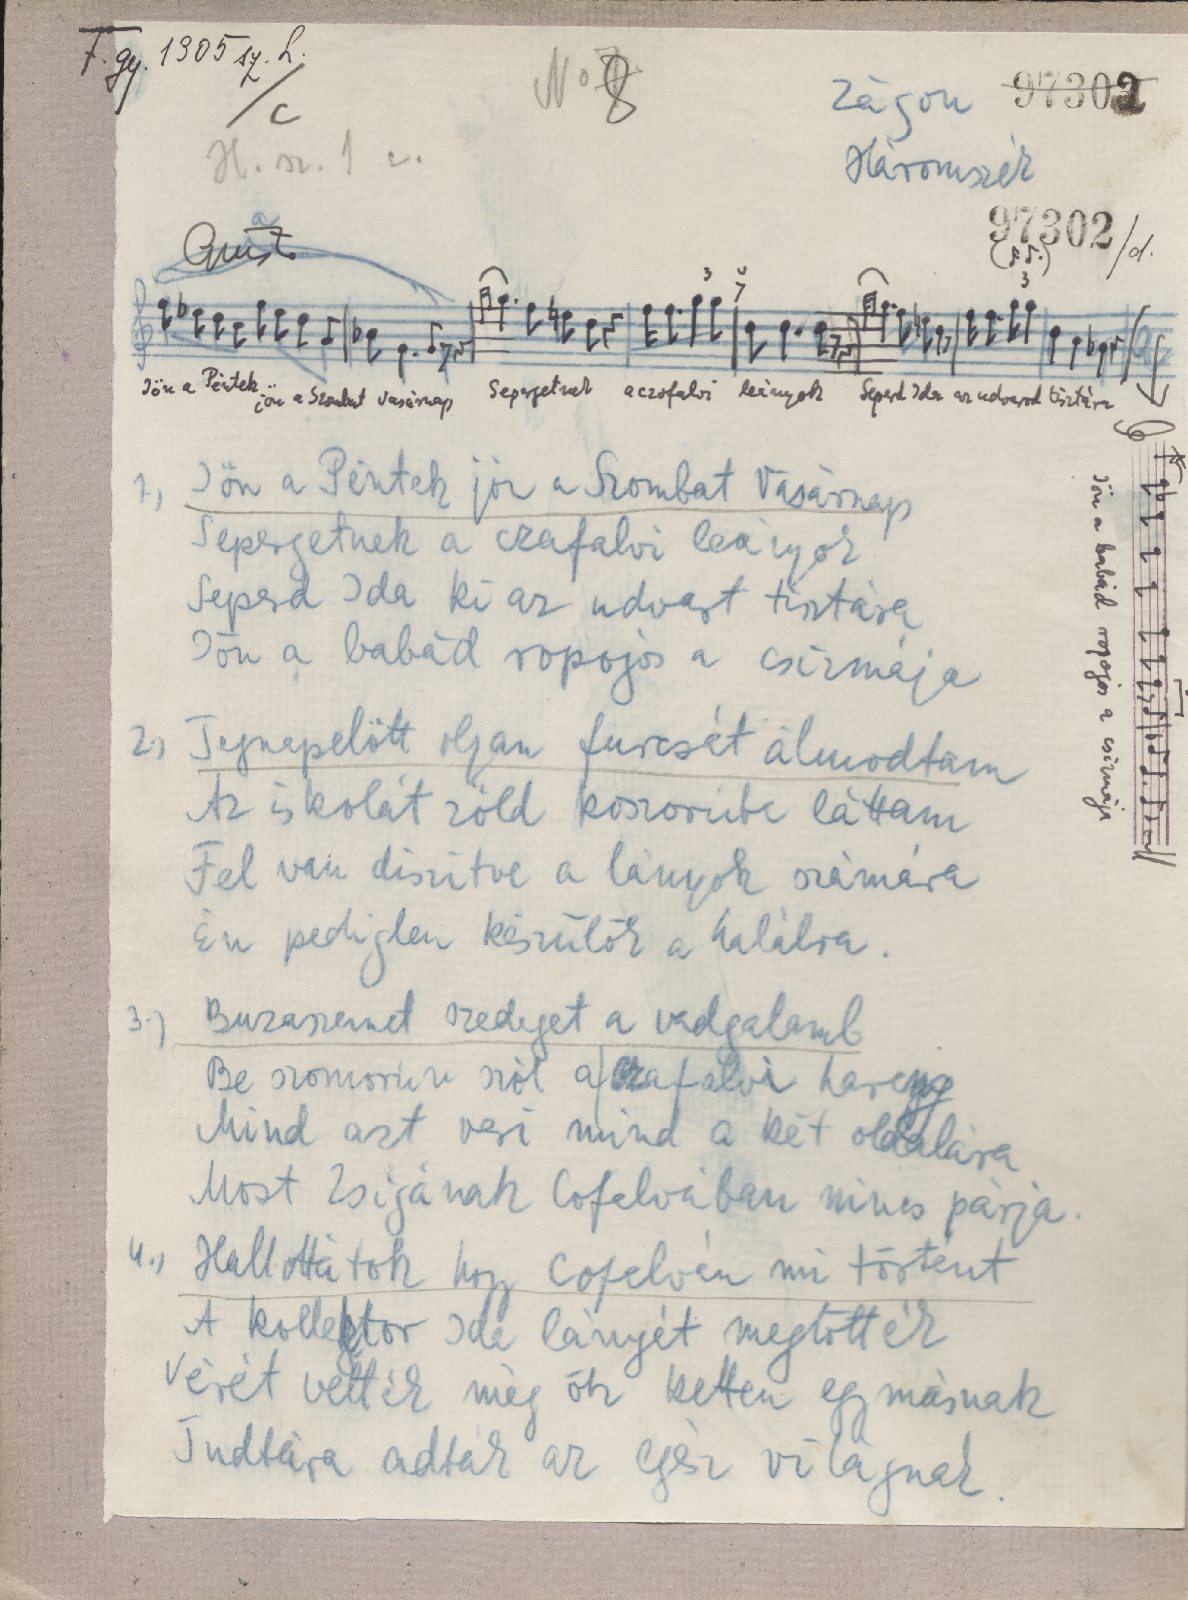 F. gy. 1305 sz. L.
/c
No 8
Zágon 97302
H. sz. 1 c.
Háromszék
97302/d.
Giusto
Jön a Péntek jön a Szombat vasárnap Sepergetnek a czofalvi leányok Seperd Ida az udvarod tisztára
1, Jön a Péntek jön a Szombat Vasárnap
Sepergetnek a czafalvi leányok
Seperd Ida ki az udvart tisztára
Jön a babád ropojós a csizmája
Jön a babád ropojós a csizmája
2, Tegnapelött oljan furcsét álmodtam
Az iskolát zöld koszoruba láttam
Fel van diszitve a lányok számára
Én pediglen készülök a halálra.
3.) Buzaszemet szedeget a vadgalamb
Be szomoruu szól a czafalvi hareng
Mind azt veri mind a két oldalára
Most Zsigának Cofalvában nincs párja.
4., Hallottátok hogy Cofalván mi történt
A kollektor Ida lányét megtötték
Vérét vették még ők ketten egymásnak
Tudtára adták az egész világnak.